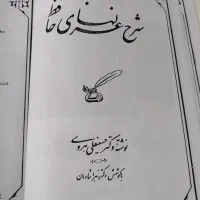 شرح غزلهای حافظ
نوشتهٔ دکتر حسینعلی هروی
باکوشش دکتر زهرا شادمان